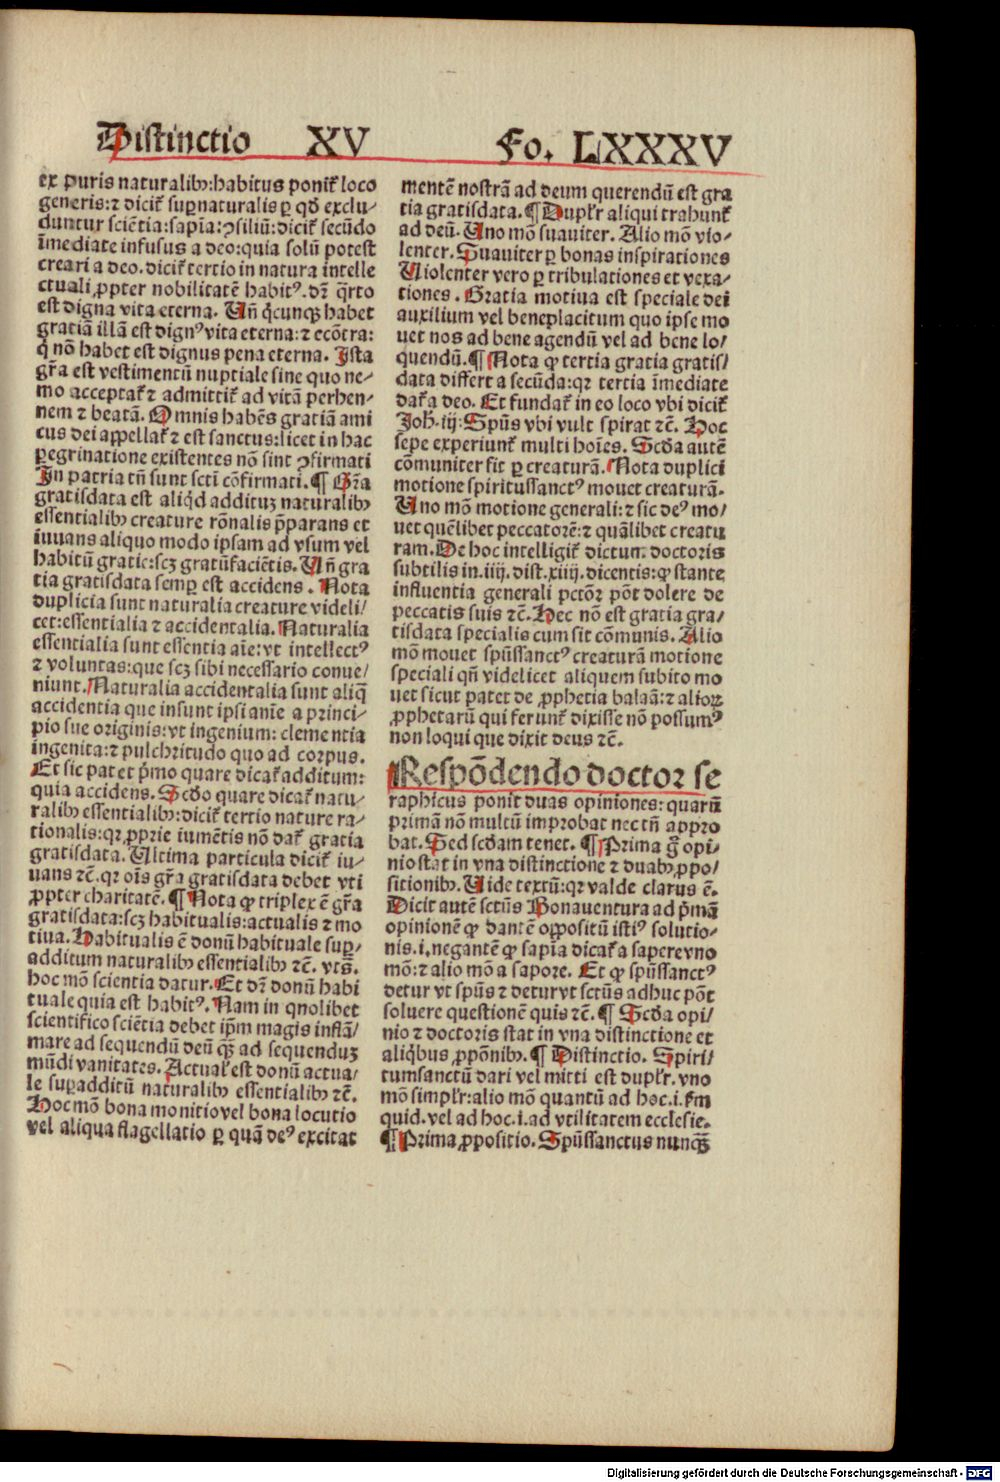 Distinctio XV Fo. LXXXV
ex puris naturalibꝰ:habitus ponit᷑ loco
generis:⁊ dicit᷑ suꝑnaturalis ꝑ qđ exclu⸗
duntur sciẽtia:sapĩa:ↄsiliũ:dicit᷑ secũdo
ĩmediate infusus a deo:quia solũ potest
creari a deo. dicit᷑ tertio in natura intelle
ctuali ꝓpter nobilitatẽ habitꝰ. dr̃ q̃rto
est digna vita eterna. Uñ q̇cunqꝫ habet
gratiã illã est dignꝰ vita eterna:⁊ ecõtra:
q̇ nõ habet est dignus pena eterna. Ista
gr̃a est vestimentũ nuptiale sine quo ne⸗
mo acceptat᷑ ⁊ admittit᷑ ad vitã perhen⸗
nem ⁊ beatã. Omnis habẽs gratiã ami
cus dei appellat᷑ ⁊ est sanctus:licet in hac
ꝑegrinatione existentes nõ sint ↄfirmati
In patria tñ sunt sctĩ cõfirmati. ¶ Gr̃a
gratisdata est aliqd̓ addituꝫ naturalibꝰ
essentialibꝰ creature rõnalis p̃parans et
iuuans aliquo modo ipsam ad vsum vel
habitũ gratie:scꝫ gratũfaciẽtis. Uñ gra
tia gratisdata semꝑ est accidens. Nota
duplicia sunt naturalia creature videli⸗
cet:essentialia ⁊ accidentalia. Naturalia
essentialia sunt essentia aĩe:vt intellectꝰ
⁊ voluntas:que scꝫ sibi necessario conue⸗
niunt. Naturalia accidentalia sunt aliq̃
accidentia que insunt ipsi anĩe a princi⸗
pio sue originis:vt ingenium: clementia
ingenita:⁊ pulchritudo quo ad corpus.
Et sic patet p̃mo quare dicat᷑ additum:
quia accidens. Scđo quare dicat᷑ natu⸗
ralibꝰ essentialibꝰ:dicit᷑ tertio nature ra⸗
tionalis:qꝛ ꝓprie iumẽtis nõ dat᷑ gratia
gratisdata. Ultima particula dicit᷑ iu⸗
uans ⁊c̃. qꝛ oĩs gr̃a gratisdata debet vti
ꝓpter charitatẽ. ¶ Nota ꝙ triplex ẽ gr̃a
gratisdata:scꝫ habitualis:actualis ⁊ mo
tiua. Habitualis ẽ donũ habituale suꝑ⸗
additum naturalibꝰ essentialibꝰ ⁊c̃. vts̃.
hoc mõ scientia datur. Et dr̃ donũ habi
tuale quia est habitꝰ. Nam in qnolibet
scientifico sciẽtia debet ip̃m magis inflã⸗
mare ad sequendũ deũ q̃ꝫ ad sequenduꝫ
mũdi vanitates. Actual᷑ est donũ actua⸗
le suꝑadditũ naturalibꝰ essentialibꝰ ⁊c̃.
Hoc mõ bona monitio vel bona locutio
vel aliqua flagellatio ꝑ quã deꝰ excitat
mentẽ nostrã ad deum querendũ est gra
tia gratisdata. ¶ Dupl᷑r aliqui trahunt᷑
ad deũ. Uno mõ suauiter. Alio mõ vio⸗
lenter. Suauiter ꝑ bonas inspirationes
Uiolenter vero ꝑ tribulationes et vexa⸗
tiones. Gratia motiua est speciale dei
auxilium vel beneplacitum quo ipse mo
uet nos ad bene agendũ vel ad bene lo⸗
quendũ. ¶ Nota ꝙ tertia gratia gratis⸗
data differt a secũda:qꝛ tertia ĩmediate
dat᷑ a deo. Et fundat᷑ in eo loco vbi dicit᷑
Joh̃. iij: Spũs vbi vult spirat ⁊c̃. Hoc
sepe experiunt᷑ multi hoĩes. Scđa autẽ
cõmuniter fit ꝑ creaturã. Nota duplici
motione spiritussanctꝰ mouet creaturã.
Uno mõ motione generali:⁊ sic deꝰ mo⸗
uet quẽlibet peccatorẽ:⁊ quãlibet creatu
ram. De hoc intelligit᷑ dictum doctoris
subtilis in.iiij. dist.xiiij. dicentis:ꝙ stante
influentia generali pctõꝛ põt dolere de
peccatis suis ⁊c̃. Hec nõ est gratia gra⸗
tisdata specialis cum sit cõmunis. Alio
mõ mouet spũssanctꝰ creaturã motione
speciali qñ videlicet aliquem subito mo
uet sicut patet de ꝓphetia balaã:⁊ alioꝝ
ꝓphetarũ qui ferunt᷑ dixisse nõ possumꝰ
non loqui que dixit deus ⁊c̃.
¶Respõdendo doctor se
raphicus ponit duas opiniones: quarũ
primã nõ multũ improbat nec tñ appro
bat. Sed scđam tenet. ¶ Prima g̊ opi⸗
nio stat in vna distinctione ⁊ duabꝰ ꝓpo⸗
sitionibꝰ. Uide textũ:qꝛ valde clarus ẽ.
Dicit autẽ sctũs Bonauentura ad p̃mã
opinionẽ ꝙ dantẽ oppositũ istiꝰ solutio⸗
nis.i.negantẽ ꝙ sapĩa dicat᷑ a sapere vno
mõ:⁊ alio mõ a sapore. Et ꝙ spũssanctꝰ
detur vt spũs ⁊ detur vt sctũs adhuc põt
soluere questionẽ quis ⁊c̃. ¶ Scđa opi⸗
nio ⁊ doctoris stat in vna distinctione et
aliqbus ꝓpõnibꝰ. ¶ Distinctio. Spiri⸗
tumsanctũ dari vel mitti est dupl᷑r. vno
mõ simpl᷑r:alio mõ quantũ ad hoc.i.s̃m
quid. vel ad hoc.i.ad vtilitatem ecclesie.
¶ Prima ꝓpositio. Spũssanctus nunq̃ꝫ
Digitalisierung gefördert durch die Deutsche Forschungsgemeinschaft - DFG